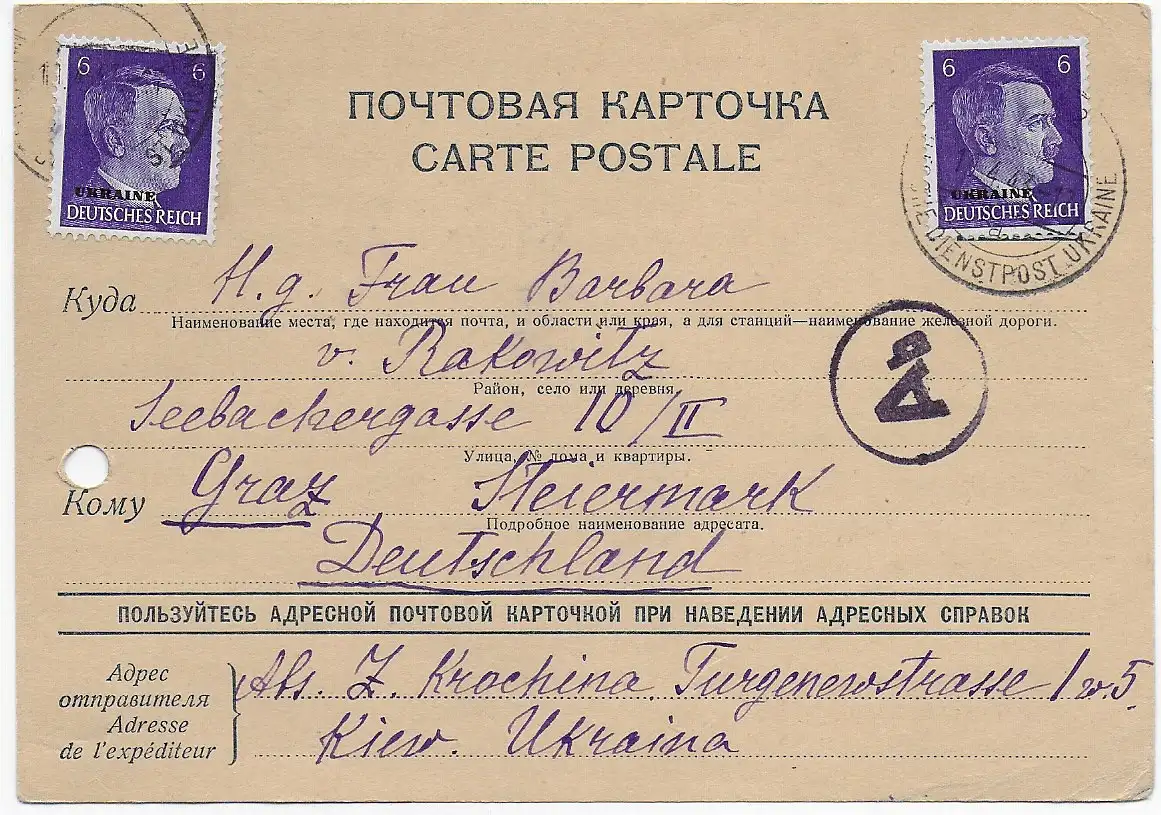 6 6
UKRAINE
DEUTSCHES REICH
6 6
UKRAINE
DEUTSCHES REICH
ПОЧТОВАЯ КАРТОЧКА
CARTE POSTALE
DIENSTPOST UKRAINE
Куда H. g. Frau Barbara
Наименование места, где находится почта, и области или края, а для станций—наименование железной дороги.
v. Rakowitz
Район, село или деревня.
Seebachergasse 10/II
Улица, № дома и квартиры.
Кому Graz Steiermark
Подробное наименование адресата.
Deutschland
Ab
ПОЛЬЗУЙТЕСЬ АДРЕСНОЙ ПОЧТОВОЙ КАРТОЧКОЙ ПРИ НАВЕДЕНИИ АДРЕСНЫХ СПРАВОК
Адрес
отправителя
Adresse
de l'expéditeur
Abs. Z. Krochina. Turgenewstrasse 1 w. 5.
Kiew. Ukraina